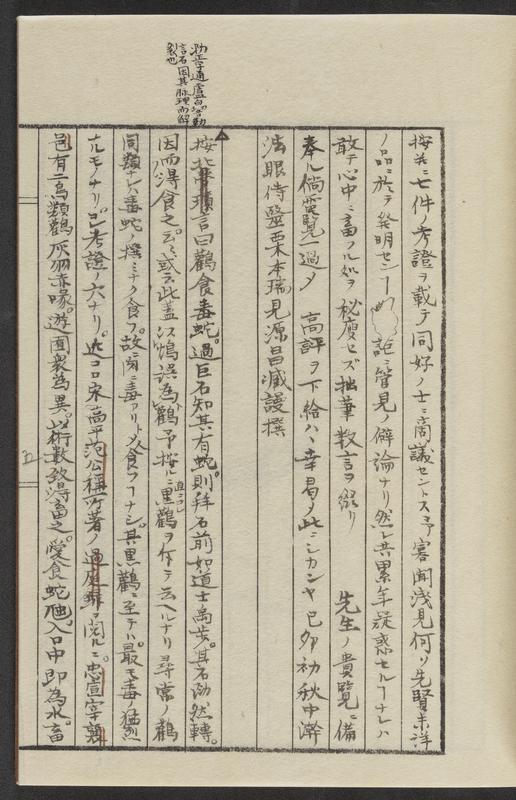 泐音通廬谷切動
言石因其脉理而解
裂也
按共ニ七件ノ考證ヲ載テ同好ノ士ニ商議セントス予寡聞浅見何ソ先賢未詳
ノ品ニ於テ発明センヿ 詑ニ管見ノ僻論ナリ然レ共累年疑惑セルヿナレハ
敢テ心中ニ畜フル処ヲ秘廋セズ拙筆数言ヲ綴リ 先生ノ貴覧ニ備
奉ル倘電覧一過ノ 高評ヲ下給ハヽ幸曷ノ此ニシカンヤ 己卯初秋中澣
法眼侍毉栗本瑞見源昌臧謾撰
按北戸瑣言曰鸛食毒蛇。過巨石知其有蛇。則拜石前如道士禹歩。其石泐然轉。
因而淂食之。云々或云此蓋以鴆誤為鸛予按ルニ里鸛ヲ作テ云ヘルナリ尋常ノ鸛
同類ナレハ毒蛇ノ撰ミナク食フ。故ニ肉ニ毒アリト〆食フヿナシ。其黒鸛ニ至テハ。最モ毒ノ猛烈
ナルモノナリ。ゴレ考證ノ六ナリ。近コロ宋高平范公稱所著ノ過庭録ヲ閲ルニ。忠宣宰襄
邑有二鳥類鸛灰羽赤喙。遊園衆為異。以術数致淂畜之。愛食蛇虺。入口中即為水。畜
五